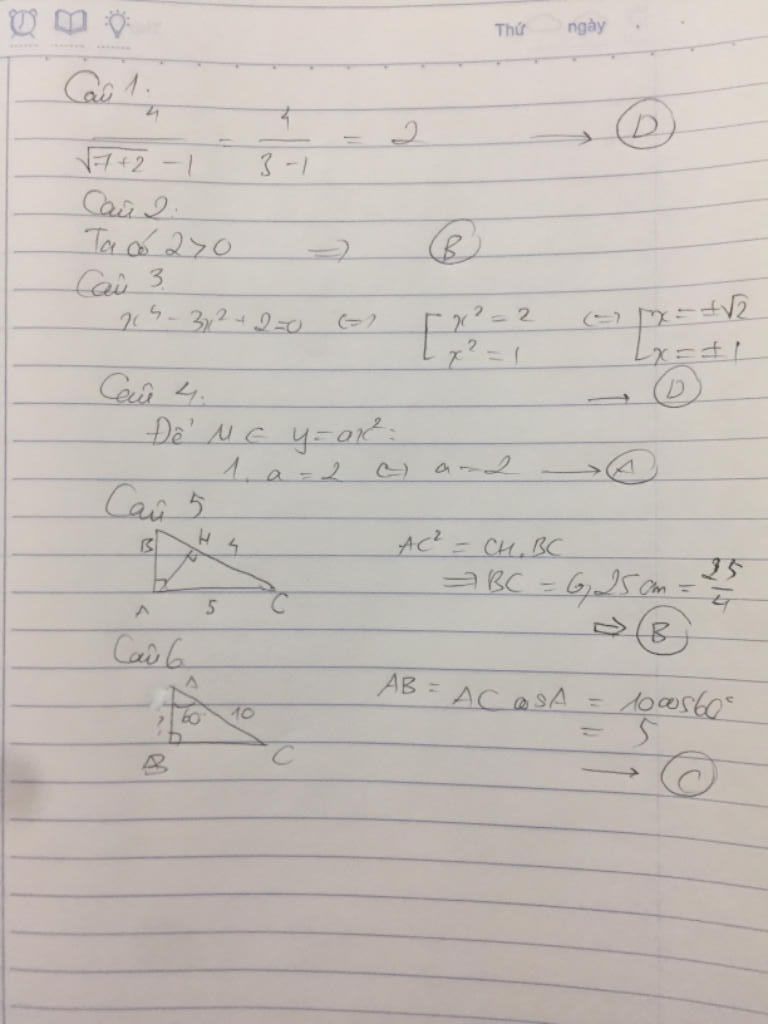 Thứ ngày
Câu 1:
4/(√(7+2) - 1) = 4/(3-1) = 2 → D
Câu 2:
Ta có 2>0 => B
Câu 3
x⁴ - 3x² + 2 = 0 <=> [ x² = 2 <=> [ x = ±√2
x² = 1 x = ±1
Câu 4: → D
Để M ∈ y = ax²:
1. a = 2 <=> a = 2 → A
Câu 5
B H 4 AC² = CH.BC
=> BC = 6,25cm = 25/4
A 5 C
=> B
Câu 6
A AB = AC cosA = 10cos60°
? 60° 10 = 5
B C
→ C